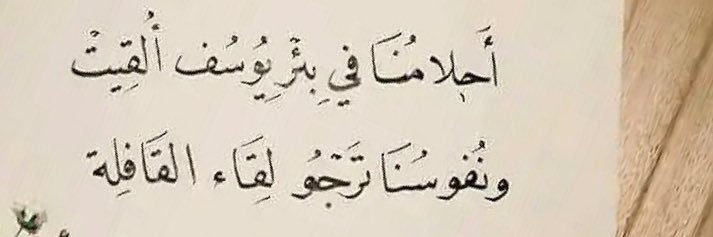 أَحلامُنَا في بِئرِ يُوسُف أُلقِيتْ
ونُفوسُنَا تَرجُو لِقَاء القَافِلة